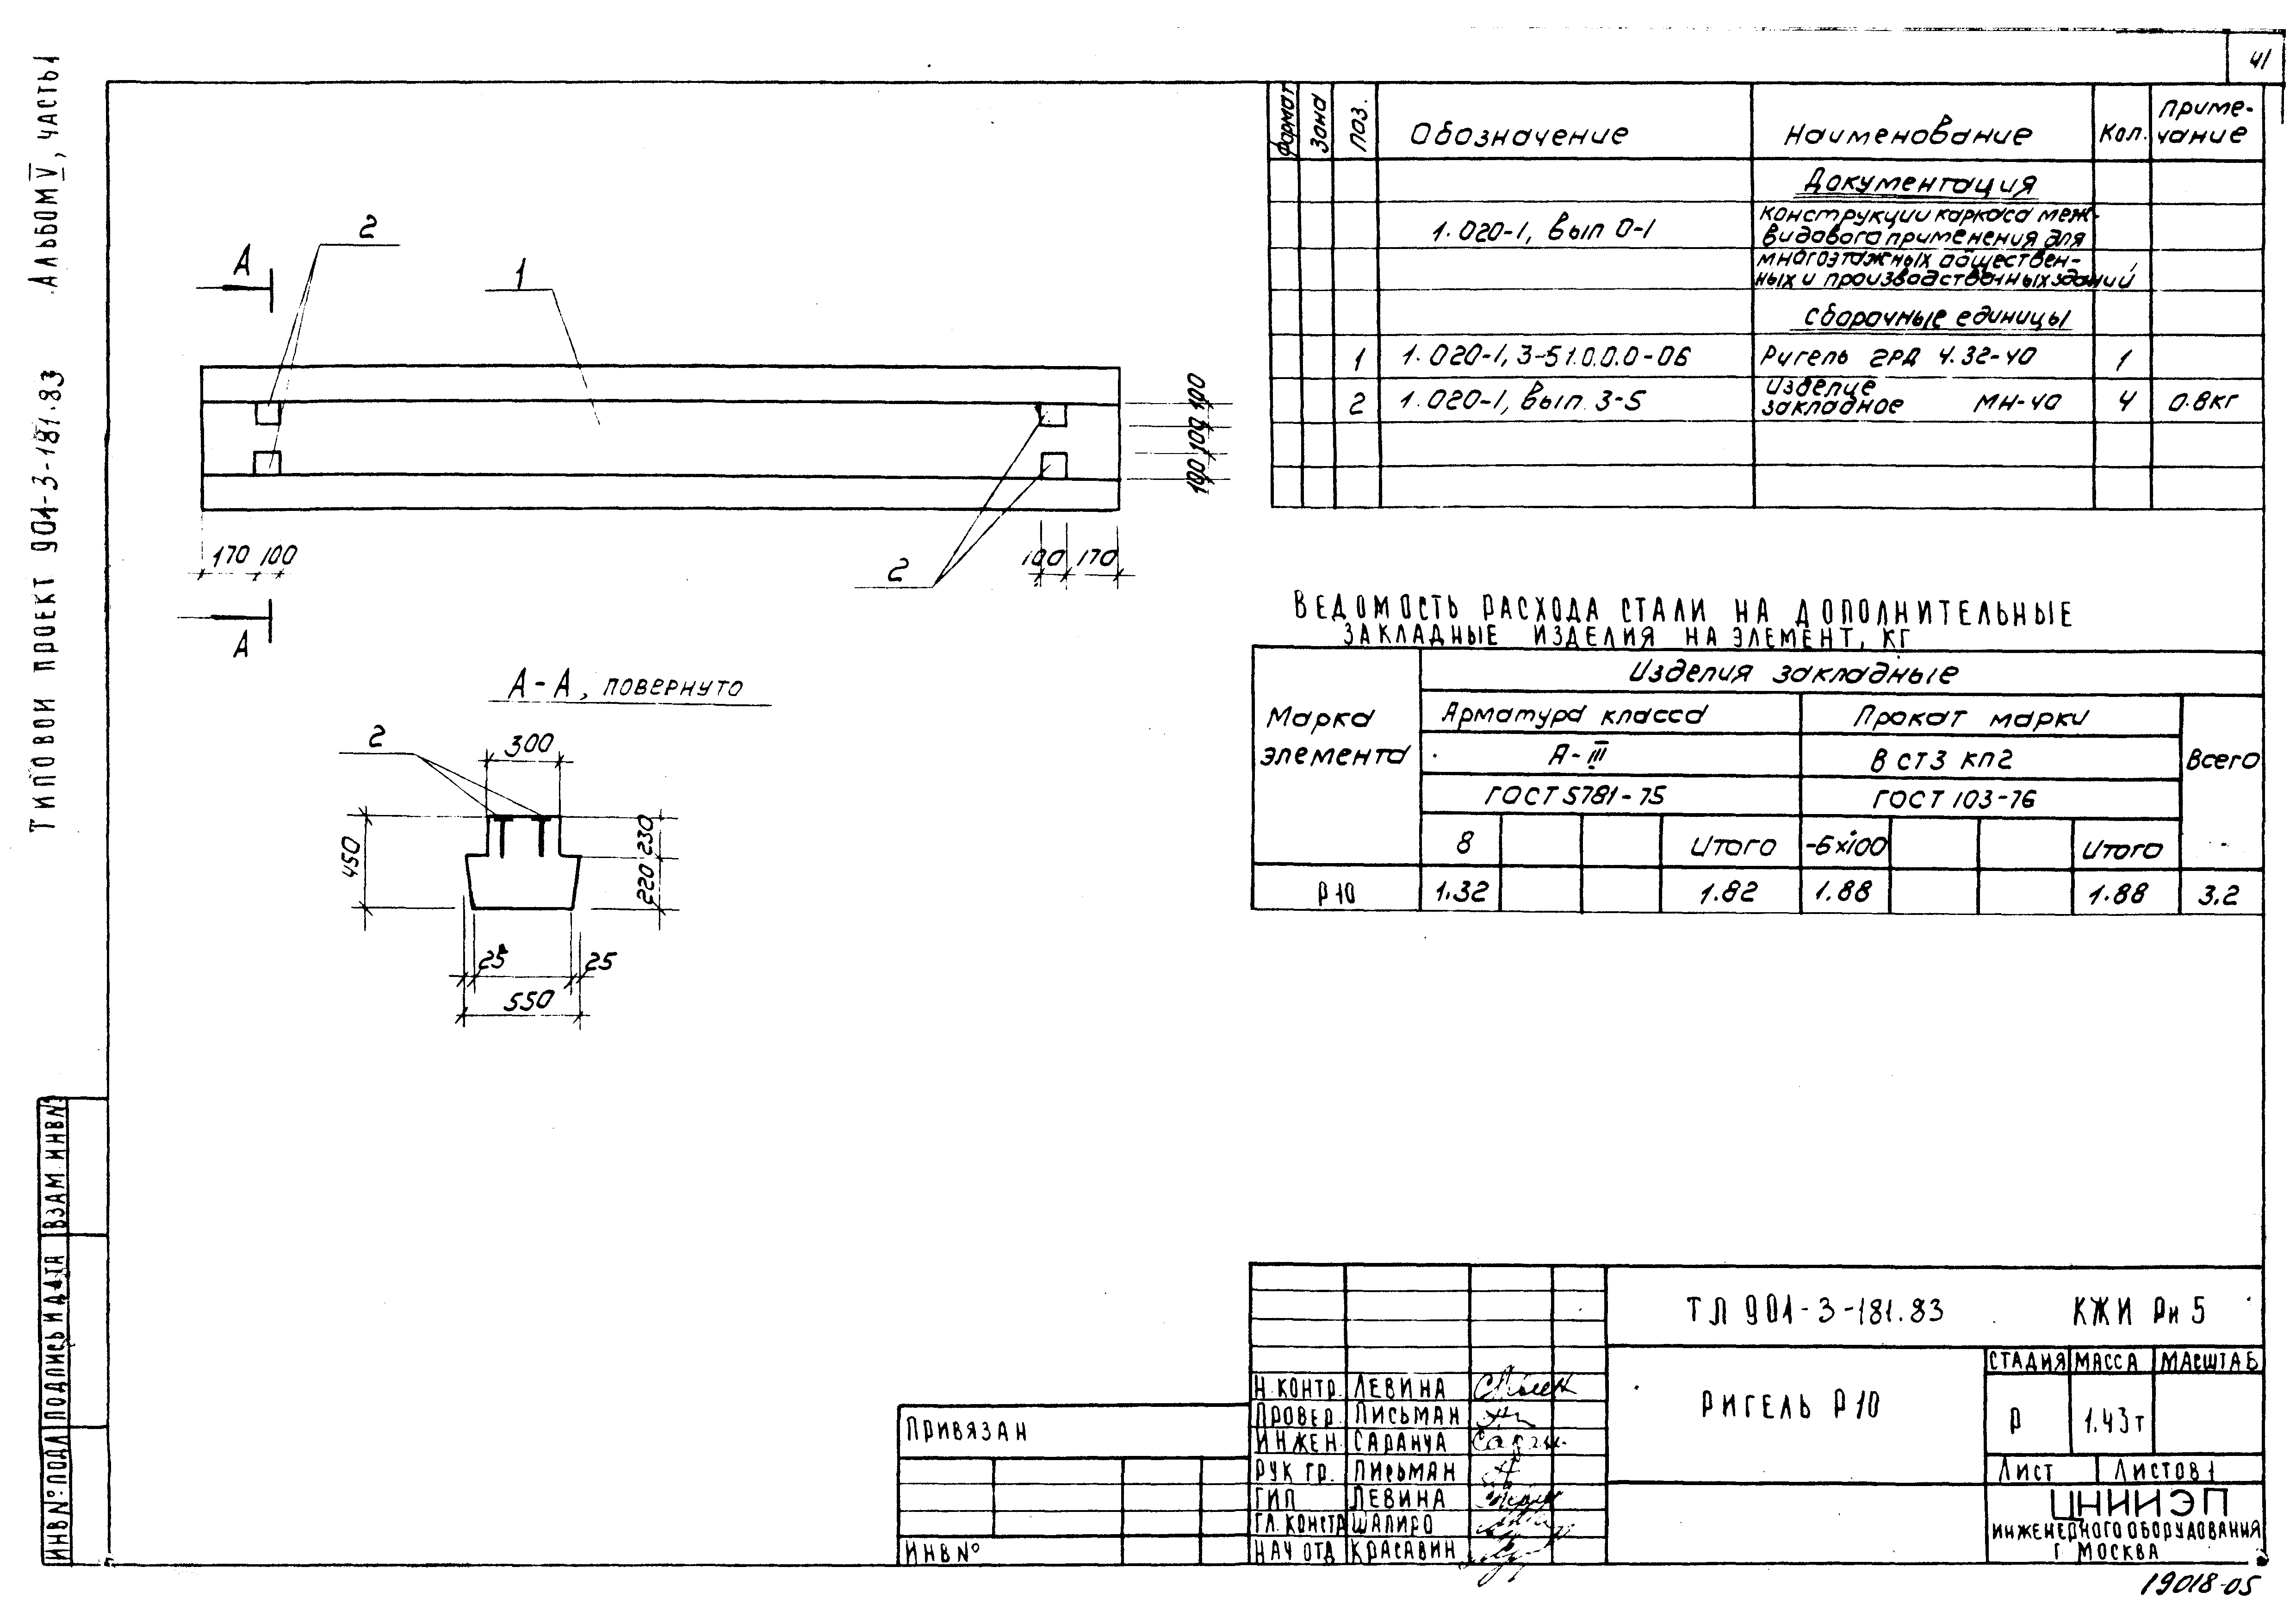 41
Альбом V, часть 1
Типовой проект 901-3-181.83
Формат
Зона
Поз.
Обозначение
Наименование
Кол.
Приме-
чание
Документация
1.020-1, Вып 0-1
Конструкции каркаса меж-
видового применения для
многоэтажных обществен-
ных и производственных зданий
Сборочные единицы
1 1.020-1, 3-51.0.0.0-06 Ригель 2РД 4.32-40 1
2 1.020-1, Вып. 3-5 Изделие закладное МН-40 4 0.8кг
А
2
1
170 100
100 170
100
100
100
2
А
А-А, повернуто
2
300
450
230
220
25 25
550
Ведомость расхода стали на дополнительные
закладные изделия на элемент, кг
Марка
элемента
Изделия закладные
Арматура класса
Прокат марки
А-III
В ст3 кп2
Всего
ГОСТ 5781-75
ГОСТ 103-76
8 Итого -6×100 Итого
Р10 1.32 1.82 1.88 1.88 3.2
ИНВ № ПОДЛ
ПОДПИСЬ И ДАТА
ВЗАМ. ИНВ №
ПРИВЯЗАН
ИНВ №
Н. КОНТР. ЛЕВИНА
ПРОВЕР. ПИСЬМАН
ИНЖЕН. САРАНЧА
РУК ГР. ПИСЬМАН
ГИП ЛЕВИНА
ГЛ. КОНСТР ШАПИРО
НАЧ ОТД КРАСАВИН
ТП 901-3-181.83 КЖИ Рн 5
РИГЕЛЬ Р10
СТАДИЯ МАССА МАСШТАБ
Р 1.43т
ЛИСТ ЛИСТОВ 1
ЦНИИЭП
ИНЖЕНЕРНОГО ОБОРУДОВАНИЯ
Г. МОСКВА
19018-05